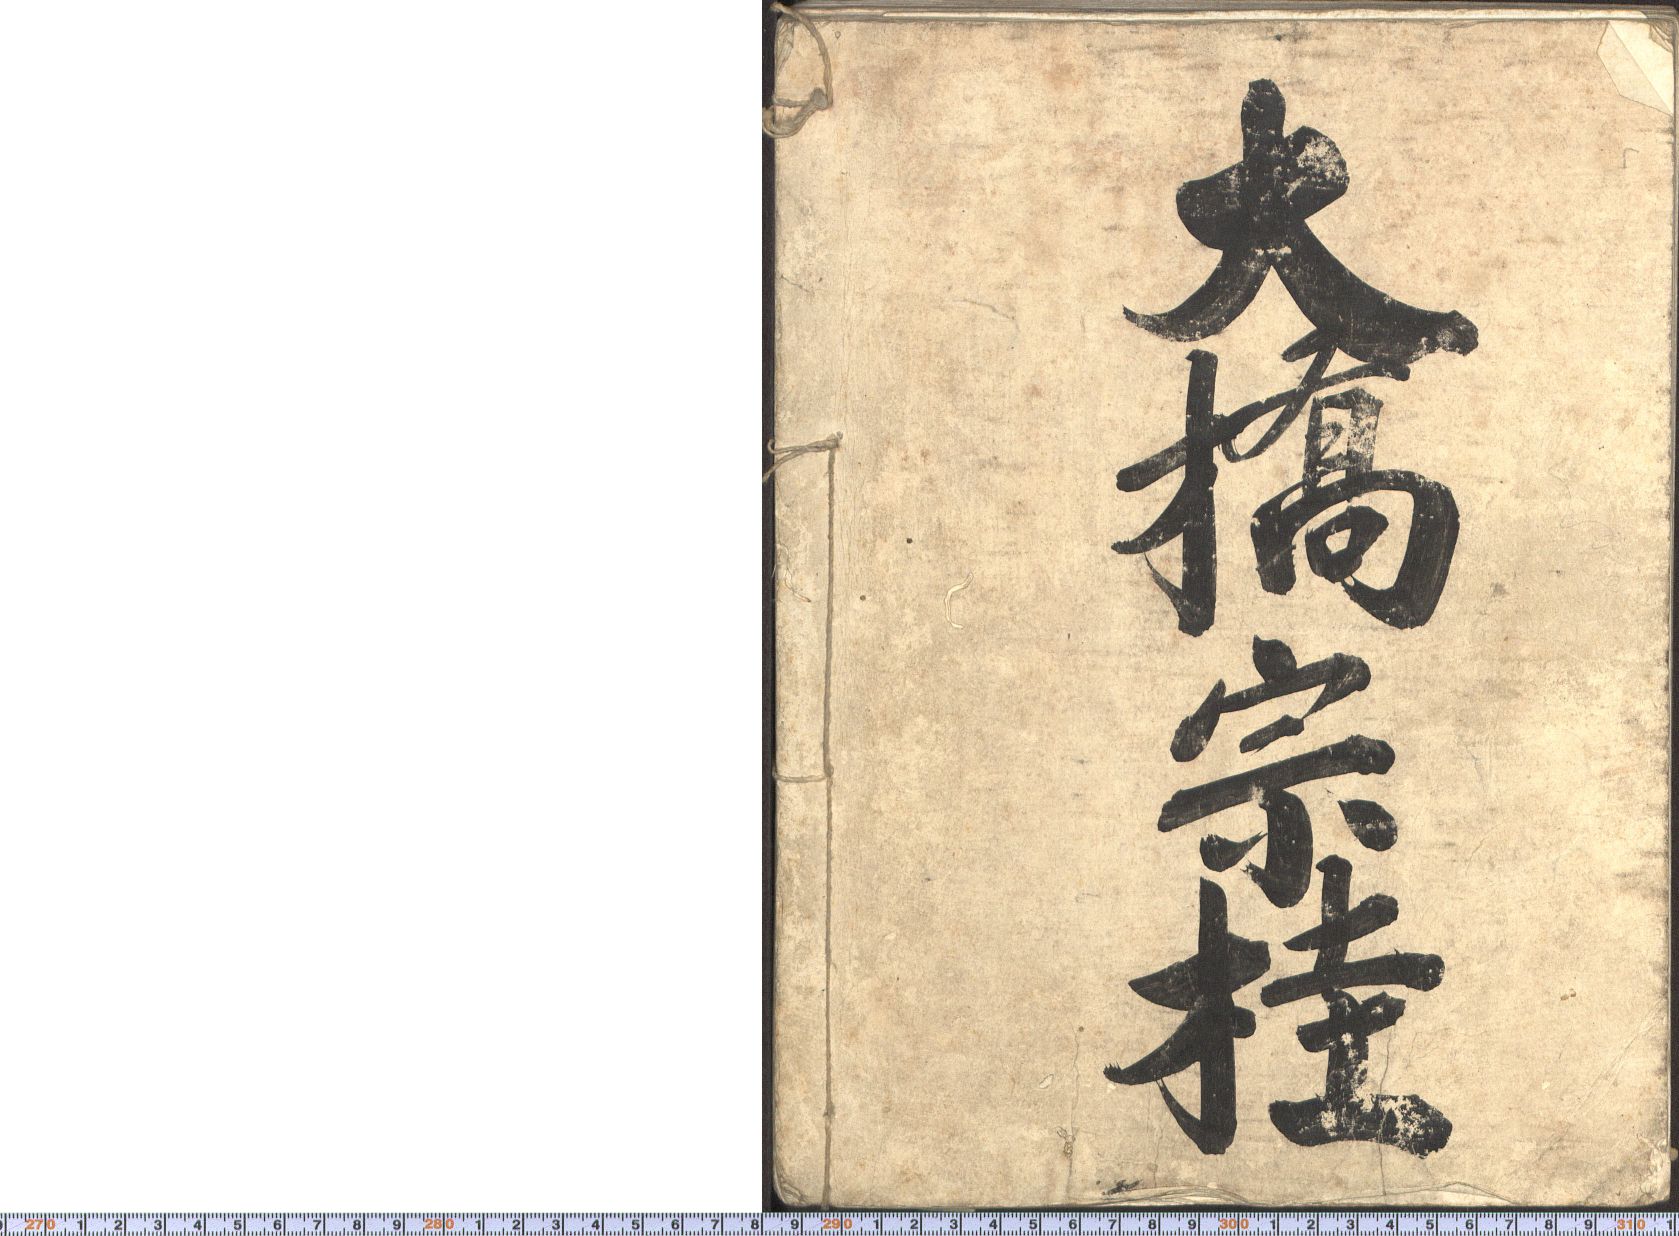 大橋宗桂
270 1 2 3 4 5 6 7 8 9 280 1 2 3 4 5 6 7 8 9 290 1 2 3 4 5 6 7 8 9 300 1 2 3 4 5 6 7 8 9 310 1